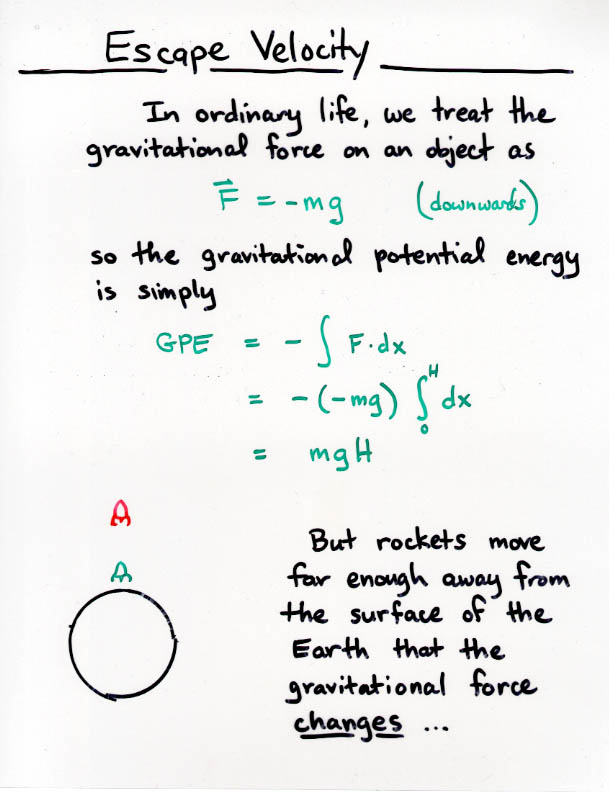 Escape Velocity
In ordinary life, we treat the
gravitational force on an object as
F⃗ = -mg (downwards)
so the gravitational potential energy
is simply
GPE = - ∫ F·dx
= - (-mg) ∫₀ᴴ dx
= mgH
But rockets move
far enough away from
the surface of the
Earth that the
gravitational force
changes ...